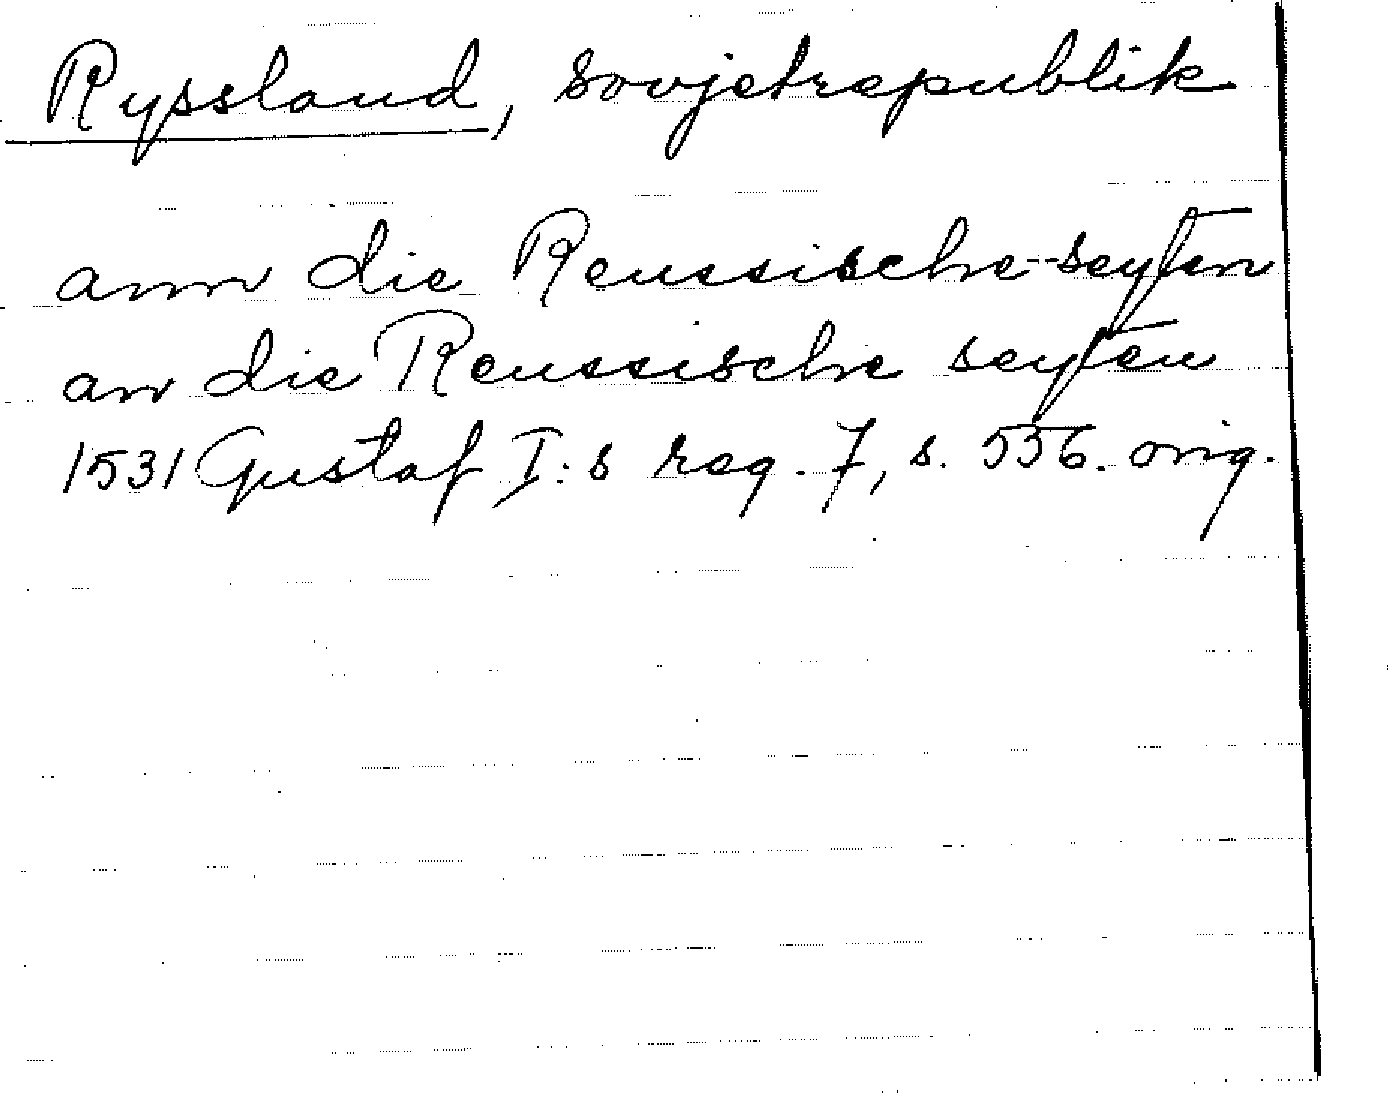 Ryssland, Sovjetrepublik
ann die Reussische seyten
an die Reussische seyten
1531 Gustaf I:s reg. 7, s. 556. orig.